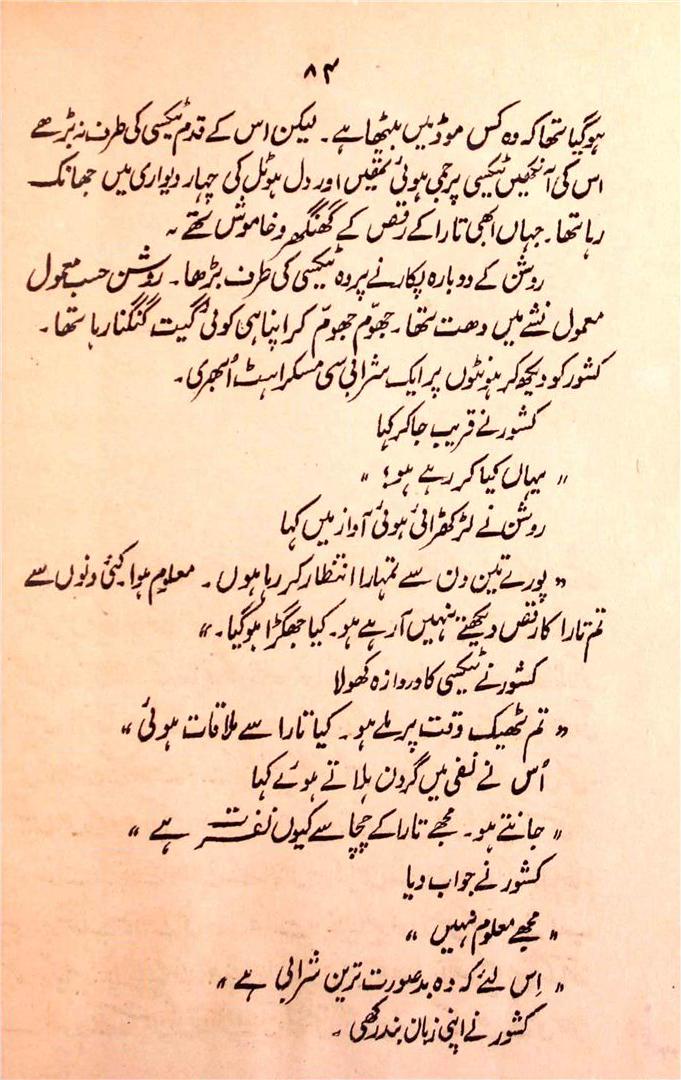 ۸۴
ہوگیا تھا کہ وہ کس موڈ میں بیٹھا ہے۔ لیکن اس کے قدم ٹیکسی کی طرف نہ بڑھے
اس کی آنکھیں ٹیکسی پر جمی ہوئی تھیں اور دل ہوٹل کی چہار دیواری میں جھانک
رہا تھا۔ جہاں ابھی تارا کے رقص کے گھنگھرو خاموش تھے۔
روشن کے دوبارہ پکارنے پر وہ ٹیکسی کی طرف بڑھا۔ روشن حسب معمول
معمول نشے میں دھت تھا۔ جھوم جھوم کر اپنا ہی کوئی گیت گنگنا رہا تھا۔
کشور کو دیکھ کر ہونٹوں پر ایک شرابی سی مسکراہٹ اُبھری۔
کشور نے قریب جا کر کہا
"یہاں کیا کر رہے ہو؟"
روشن نے لڑکھڑائی ہوئی آواز میں کہا
"پورے تین دن سے تمہارا انتظار کر رہا ہوں۔ معلوم ہوا کئی دنوں سے
تم تارا کا رقص دیکھنے نہیں آ رہے ہو۔ کیا جھگڑا ہو گیا۔"
کشور نے ٹیکسی کا دروازہ کھولا
"تم ٹھیک وقت پر ملے ہو۔ کیا تارا سے ملاقات ہوئی"
اُس نے نفی میں گردن ہلاتے ہوئے کہا
"جانتے ہو۔ مجھے تارا کے چچا سے کیوں نفرت ہے"
کشور نے جواب دیا
"مجھے معلوم نہیں"
"اِس لئے کہ وہ بدصورت ترین شرابی ہے"
کشور نے اپنی زبان بند رکھی۔